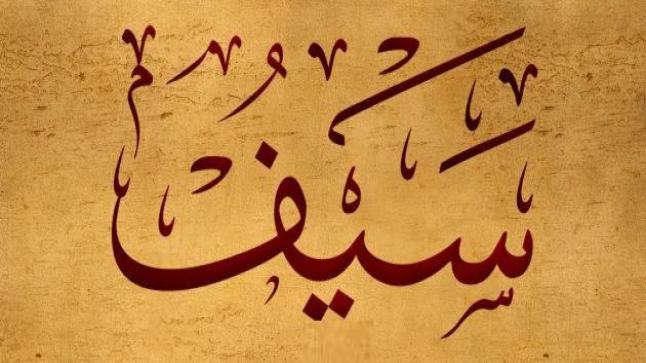 سَيفُ